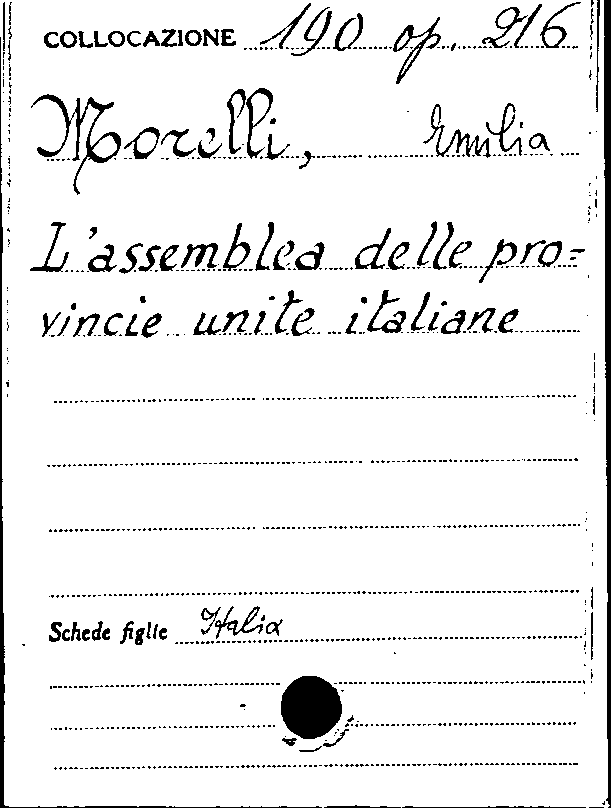 COLLOCAZIONE 190 op. 216
Morelli, Emilia
L'assemblea delle pro=
vincie unite italiane
Schede figlie Italia